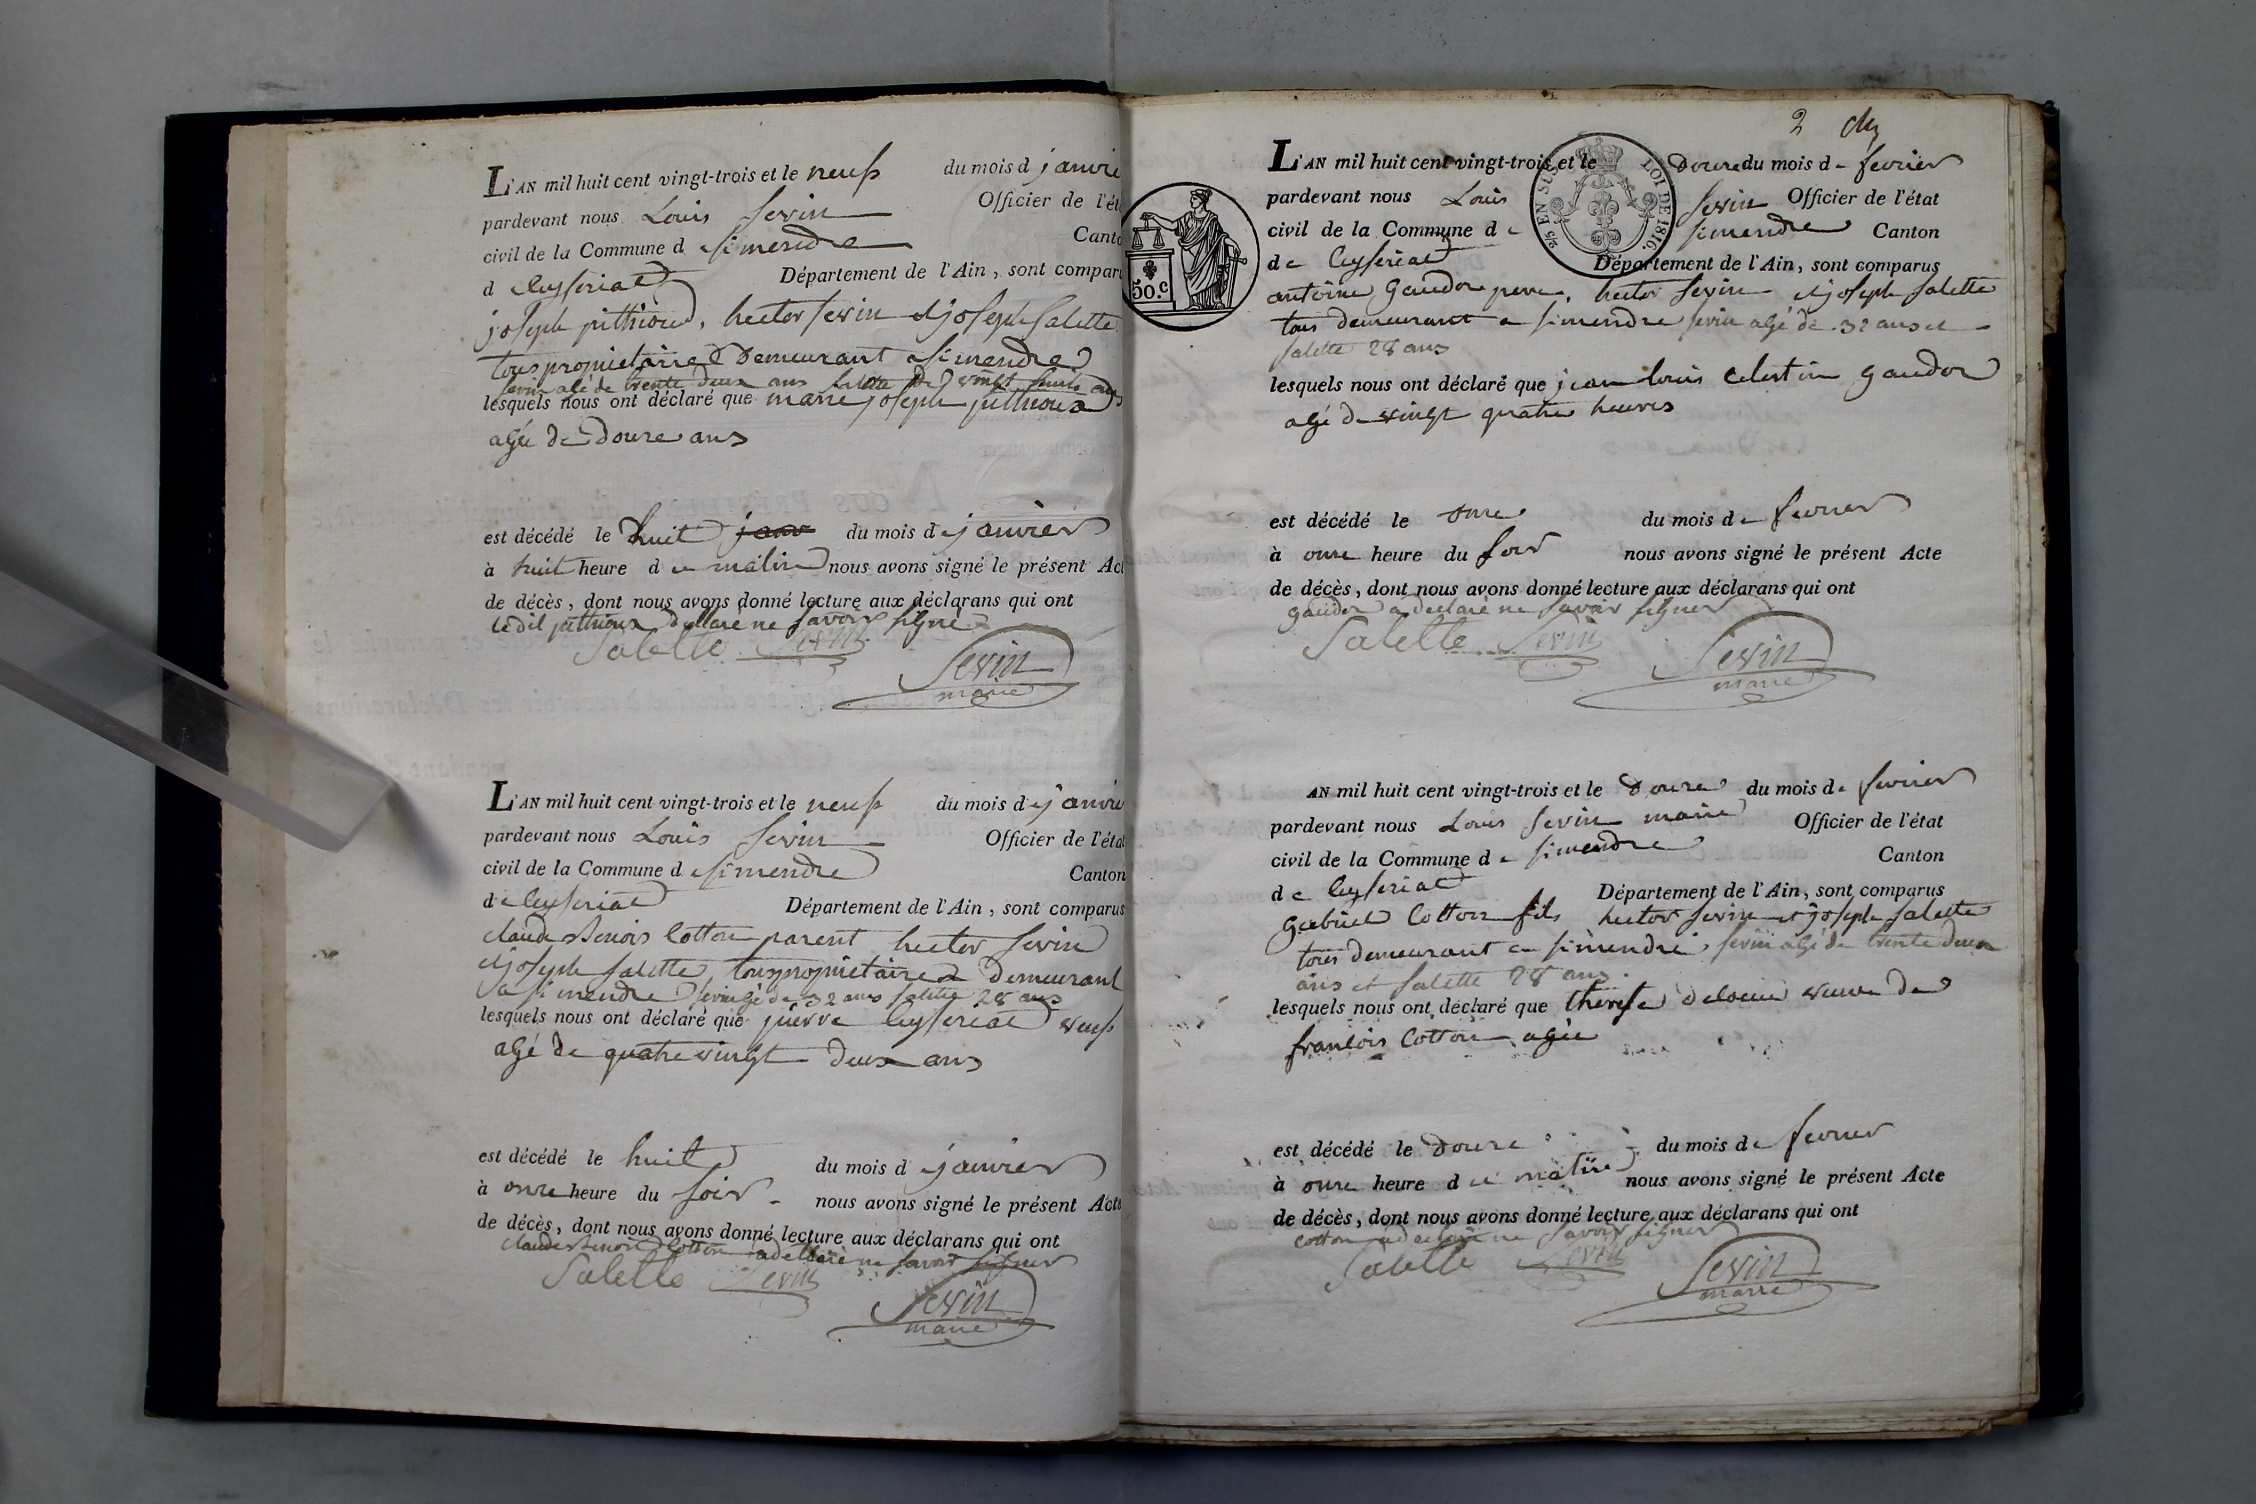 L'AN mil huit cent vingt-trois et le neuf du mois d janvie
pardevant nous Louis Sevin Officier de l'ét
civil de la Commune d e Simendre Canto
d Ceyseriat Département de l'Ain, sont compar
joseph pithioud, hector Sevin et joseph Salette
tous proprietaire Demeurant a Simendre
Sevin agé de trente deux ans Salette de vingt huit ans
lesquels nous ont déclaré que marie joseph pithioud
agée de Doure ans
est décédé le huit du mois de janvier
à huit heure d u matin nous avons signé le présent Act
de décès, dont nous avons donné lecture aux déclarans qui ont
ledit pithioux declare ne savoir signé
Salette Sevin
Sevin
maire
L'AN mil huit cent vingt-trois et le neuf du mois de janvie
pardevant nous Louis Sevin Officier de l'état
civil de la Commune d e Simendre Canton
de Ceyseriat Département de l'Ain, sont comparus
claude Benois Cotton parent hector Sevin
et joseph Salette, tous proprietaire Demeurant
a Simendre Sevin agé de 32 ans Salette 28 ans
lesquels nous ont déclaré que pierre Ceyseriat veuf
agé de quatre vingt deux ans
est décédé le huit du mois d e janvier
à onre heure du soir nous avons signé le présent Acte
de décès, dont nous avons donné lecture aux déclarans qui ont
claude Benoit Cotton a declaré ne savoir signer
Salette Sevin
Sevin
maire
2
L'AN mil huit cent vingt-trois et le Doure du mois de fevrier
pardevant nous Louis Sevin Officier de l'état
civil de la Commune d e Simendre Canton
de Ceyseriat Département de l'Ain, sont comparus
antoine Gaudor pere, hector Sevin et joseph Salette
tous demeurant a Simendre Sevin agé de 32 ans et
Salette 28 ans
lesquels nous ont déclaré que jean louis celestin Gaudor
agé de vingt quatre heures
est décédé le onre du mois de fevrier
à onre heure du soir nous avons signé le présent Acte
de décès, dont nous avons donné lecture aux déclarans qui ont
gaudor a declaré ne savoir signer
Salette Sevin
Sevin
maire
25 EN SUS LOI DE 1816.
50.c
AN mil huit cent vingt-trois et le Doure du mois de fevrier
pardevant nous Louis Sevin maire Officier de l'état
civil de la Commune d e Simendre Canton
de Ceyseriat Département de l'Ain, sont comparus
Gabriel Cotton fils hector Sevin et joseph Salette
tous demeurant a Simendre Sevin agé de trente deux
ans et Salette 28 ans
lesquels nous ont déclaré que therese veuve de
francois Cotton agée
est décédé le Doure du mois de fevrier
à onre heure d u matin nous avons signé le présent Acte
de décès, dont nous avons donné lecture aux déclarans qui ont
cotton a declaré ne savoir signer
Salette Sevin
Sevin
maire